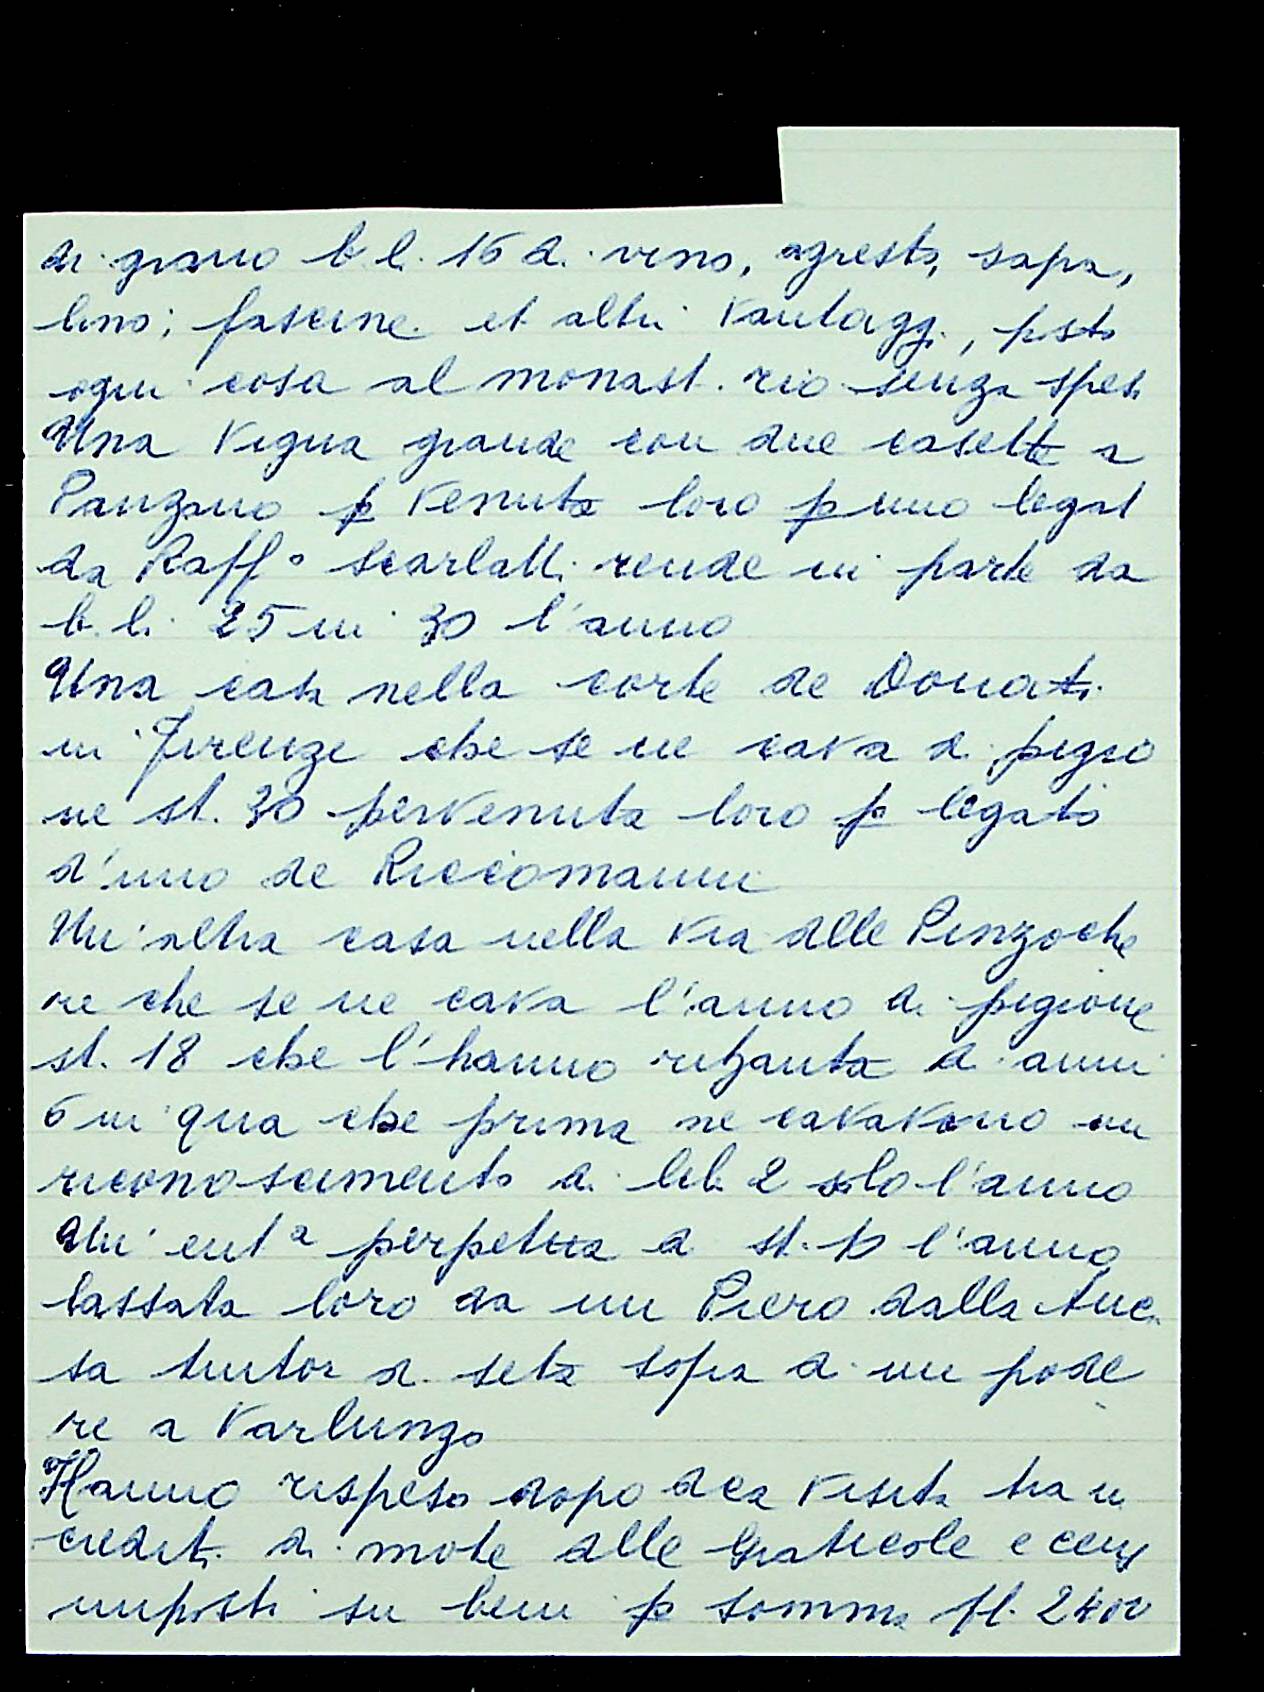 di grano b.li. 16 di vino, agresto, sapa,
lino; fascine et altri vantaggi, posto
ogni cosa al monast.rio senza spesa
Una vigna grande con due casette a
Panzano p venuta loro p uno legat
da Raff° Scarlatti rende in parte da
b.li. 25 in 30 l'anno
Una casa nella corte de Donati
in Firenze che se ne cava di pigio
ne st. 30 pervenuta loro p legato
d'uno de Riccomanni
Un'altra casa nella via delle Pinzoche
re che se ne cava l'anno di pigione
st. 18 che l'hanno da anni
6 in qua che prima ne cavavono un
riconoscimento di lib. 2 solo l'anno
Un'ent.a perpetua di st. l'anno
lassata loro da un Piero dalla Anci
sa tintor di seta sopra di un pode
re a Varlungo
Hanno rispeso dopo dca visita tra in
crediti di mote alle Graticole e censi
imposti su beni p somma fl. 2400